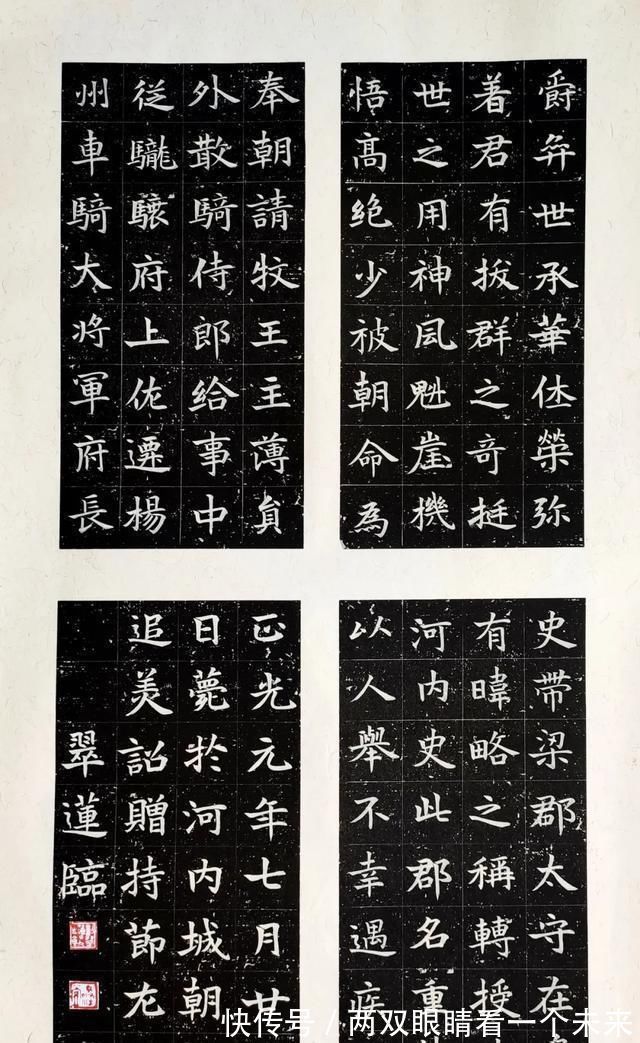 爵弈世承華休榮弥
著君有拔群之奇挺
世之用神風魁崖機
悟高絕少被朝命為
奉朝請牧王主薄員
外散騎侍郎給事中
從䮾驤府上佐遷楊
州車騎大将軍府長
史帶梁郡太守在
有暐略之稱轉授
河内史此郡名重
以人舉不幸遇疾
正光元年七月廿
日薨於河内城朝
追美詔贈持節左
翠蓮臨
快传号 / 两双眼睛看一个未来